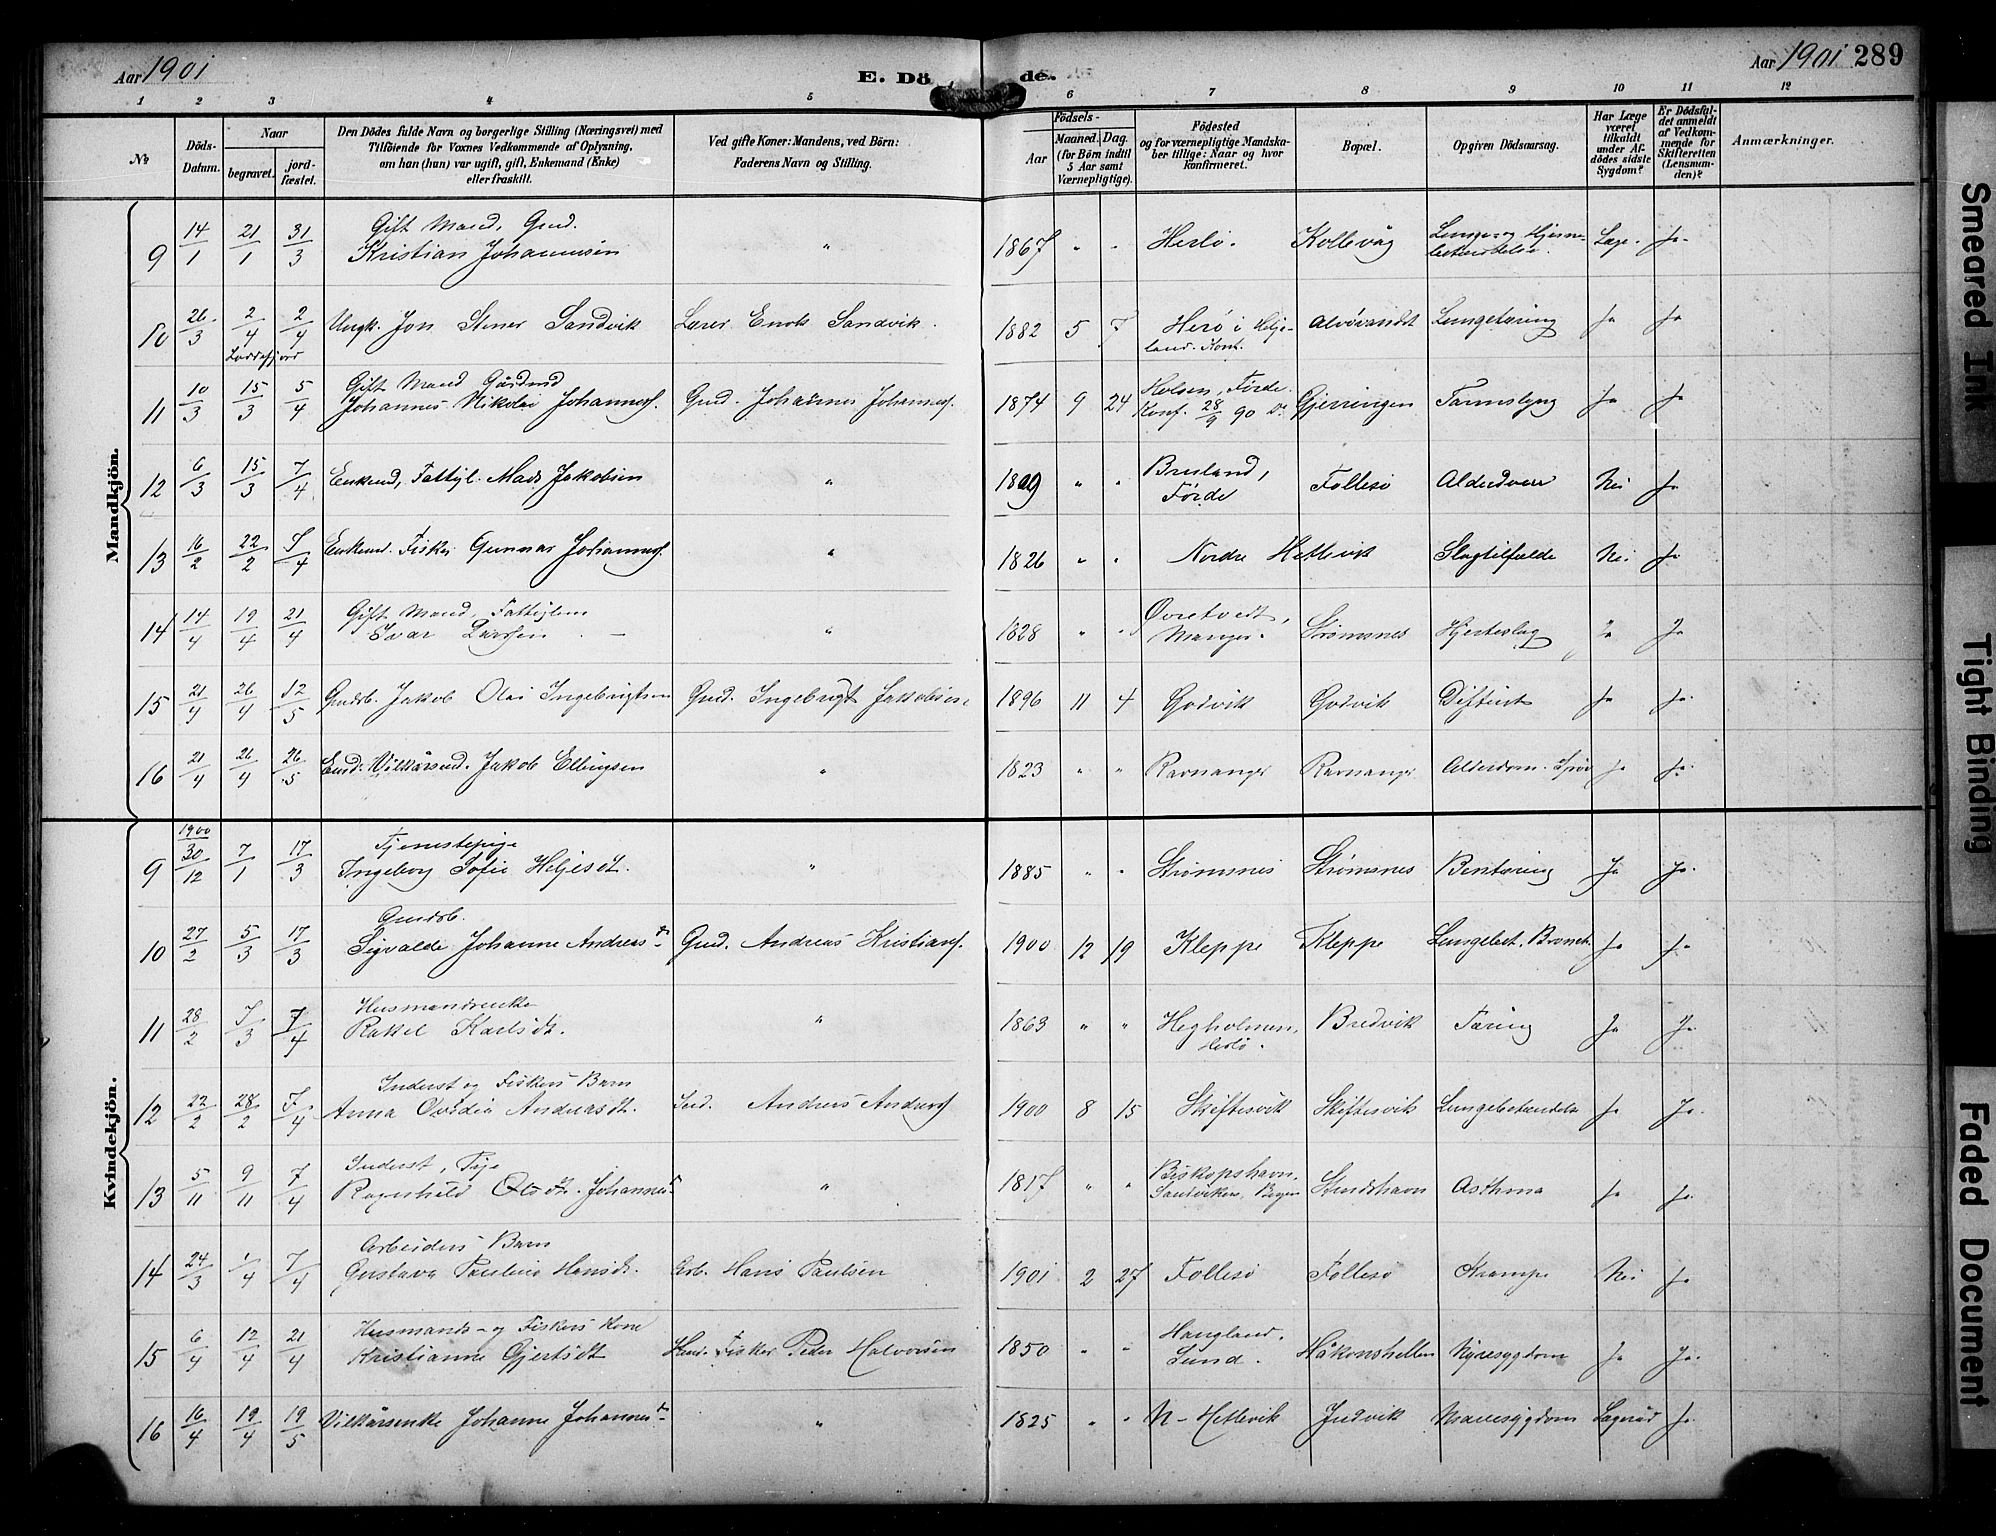 Aar 1901
E. Dö de.
Aar 1901 289
1 2 3 4 5 6 7 8 9 10 11 12
No
Döds-Datum.
Naar
begravet.
jord-fæstet.
Den Dödes fulde Navn og borgerlige Stilling (Næringsvei) med
Tilföiende for Voxnes Vedkommende af Oplysning,
om han (hun) var ugift, gift, Enkemand (Enke)
eller fraskilt.
Ved gifte Koner: Mandens, ved Börn:
Faderens Navn og Stilling.
Födsels-
Aar
Maaned. Dag.
(for Börn indtil
5 Aar samt
Værnepligtige).
Födested
og for værnepligtige Mandska-
ber tillige: Naar og hvor
konfirmeret.
Bopæl.
Opgiven Dödsaarsag.
Har Læge
været
tilkaldt
under Af-
dödes sidste
Sygdom?
Er Dödsfal-
det anmeldt
af Vedkom-
mende for
Skifteretten
(Lensman-
den)?
Anmærkninger.
Mandkjön.
9 14/1 21/1 31/3 Gift Mand, Gmd. Kristian Johannesen " 1867 " " Herlö. Kollevåg Lunge- og Hjerne-betændelse. Læge. Ja.
10 26/3 2/4 2/4 Ungk. Jon Stener Sandvik Lærer Enok Sandvik. 1882 5 7 Herö i Helje-land. Konf. Alvövandet Lungetæring Ja Ja
Loddefjord
11 10/3 15/3 5/4 Gift Mand Gårdmd Johannes Nikolai Johannes. Gmd. Johannes Johannes. 1874 9 24 Holsen, Förde. Konf. 28/9 90 Do Gjerringen Tarmslyng Ja Ja
12 6/3 15/3 7/4 Enkemd, Fattigl. Mads Jakobsen " 1809 " " Bruland, Förde Follesö Alderdom Nei Ja
13 16/2 22/2 7/4 Enkemd. Fisker Gunnar Johannes. " 1826 " " Nordre Hetlevik Slagtilfælde Nei Ja
14 14/4 19/4 21/4 Gift Mand, Fattiglem Ivar Larsen " 1828 " " Övretvedt, Manger. Strömsnes Hjerteslag Ja Ja
15 21/4 26/4 12/5 Gmdsb. Jakob Olai Ingebrigtsen Gmd. Ingebrigt Jakobsen 1896 11 4 Godvik Godvik Difterit Ja Ja.
16 21/4 26/4 26/5 Vilkårsmd. Jakob Ellingsen " 1823 " " Ravnanger Ravnanger Alderdom. Ja Ja.
Kvindekjön.
9 1900 30/12 7/1 17/3 Tjenestepige Ingeborg Sofie Heljesdt. " 1885 " " Strömsnes Strömsnes Bentæring Ja Ja.
10 27/2 5/3 17/3 Gmdsb. Sigvalde Johanne Andreasdr Gmd. Andreas Kristians. 1900 12 19 Kleppe Kleppe Lungebet. Bronch. Ja Ja
11 28/2 7/3 7/4 Husmandsenke Rakel Karlsdt. " 1863 " " Hegholmen, Herlö. Bredvik Tæring Ja Ja.
12 22/2 28/2 7/4 Inderst og Fiskers Barn Anna Ovidia Andreasdt. Ind. Andreas Anders 1900 8 15 Skiftesvik Skiftesvik Lungebetændelse Ja Ja.
13 5/11 9/11 7/4 Inderst, Pige Ragnhild Olsdt. Johannesdr " 1817 " " Biskopshavn, Sandviken, Bergen Stendshavn Asthma Ja Ja.
14 24/3 1/4 7/4 Arbeiders Barn Gustava Pauline Hansdt. Arb. Hans Paulsen 1901 2 27 Follesö Follesö Krampe Nei Ja
15 6/4 12/4 21/4 Husmands- og Fiskers Kone Kristianne Gjertsdt Fisker Peder Halvorsen 1850 " " Haugland. Sund. Håkonshellen Nyresygdom Ja Ja.
16 16/4 19/4 19/5 Vilkårsenke Johanne Johannesdr " 1825 " " N-Hetlevik Indvik Mavesygdom Lægeråd Ja.
Smeared Ink
Tight Binding
Faded Document